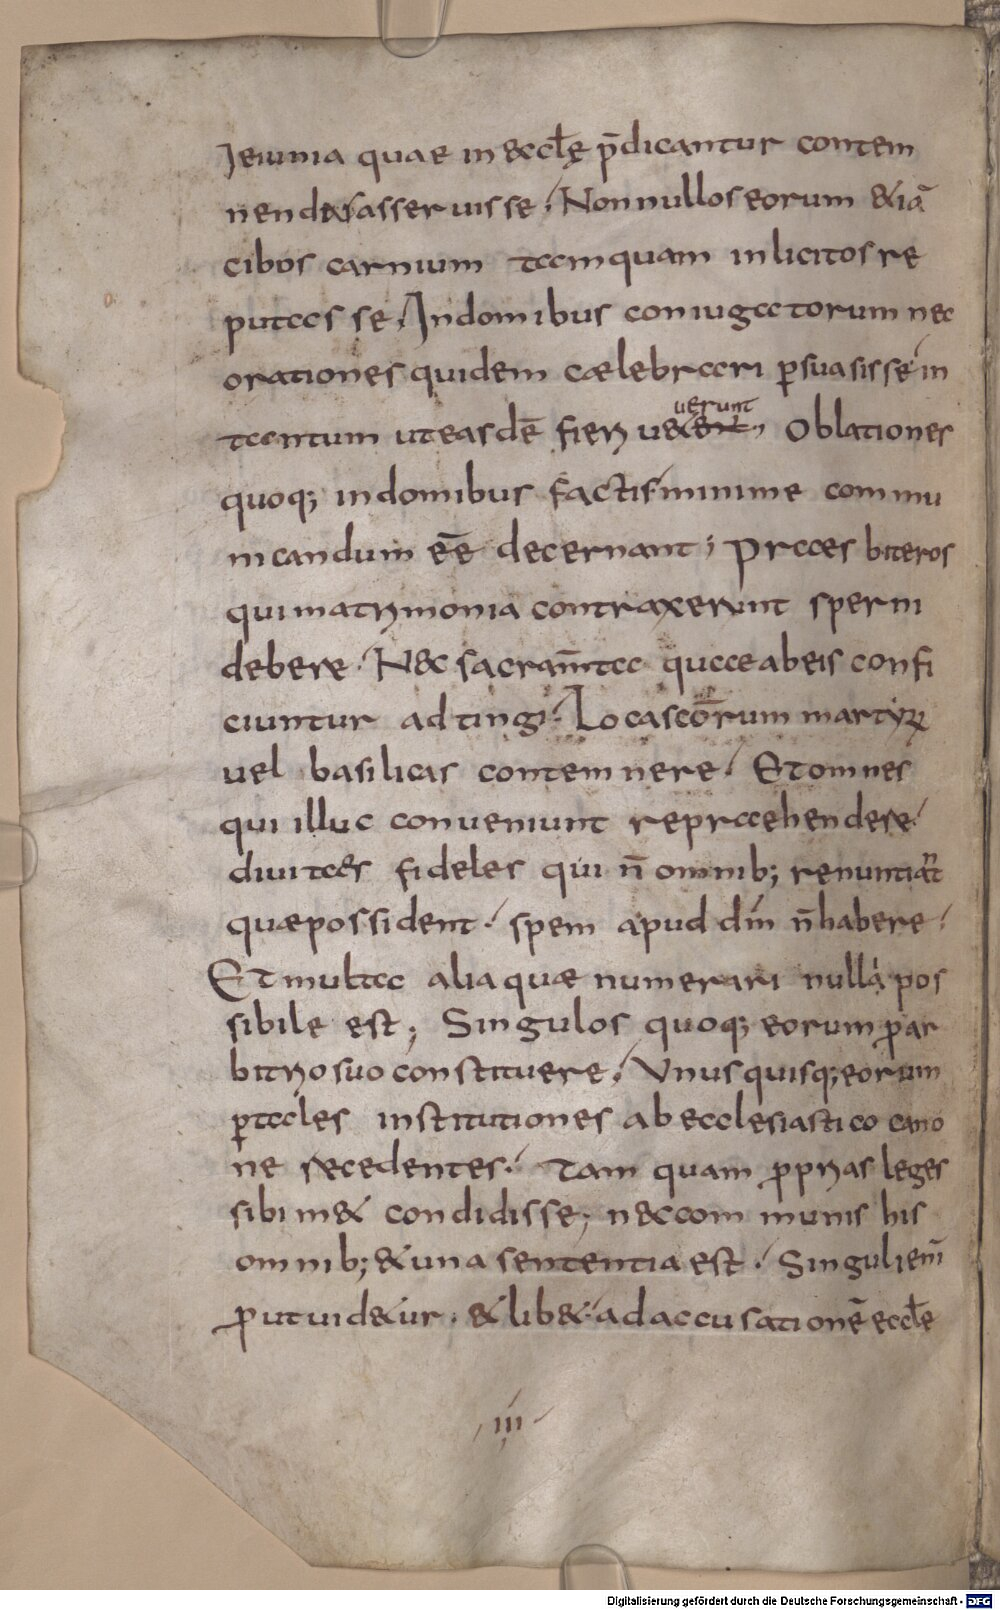 Ieiunia quae in &ccłę p̄dicantur contem
nenda asseruisse. Nonnullos eorum &iā
cibos carnium tamquam inlicitos re
putasse. In domibus coniugatorum nec
orationes quidem cælebrari ꝑsuasisse in
uerunt
tantum ut easdē fieri u&ent, Oblationes
quoq; in domibus factis minime commu
nicandum eē decernant; Praesbiteros
qui matrimonia contraxerunt sperni
debere. N&c sacram̄ta quae ab eis confi
ciuntur adtingi. Loca scōrum martyrꝝ
uel basilicas contemnere. Et omnes
qui illuc conueniunt repraehendere.
diuites fideles qui n̄ omnib; renuntiant
quæ possident. spem apud dm̄ n̄ habere.
Et multa alia quæ numerari nulla pos
sibile est; Singulos quoq; eorum ꝓ ar
bitrio suo constituere. Unusquisq; eorum
ꝑ tales institutiones ab ecclesiastico cano
ne recedentes. Tam quam ꝓprias leges
sibim& condidisse; n&c communis his
omnib; & una sententia est. Singuli enī
ꝓut uid&ur. & lib& ad accusationē eccłe
iii
Digitalisierung gefördert durch die Deutsche Forschungsgemeinschaft - DFG